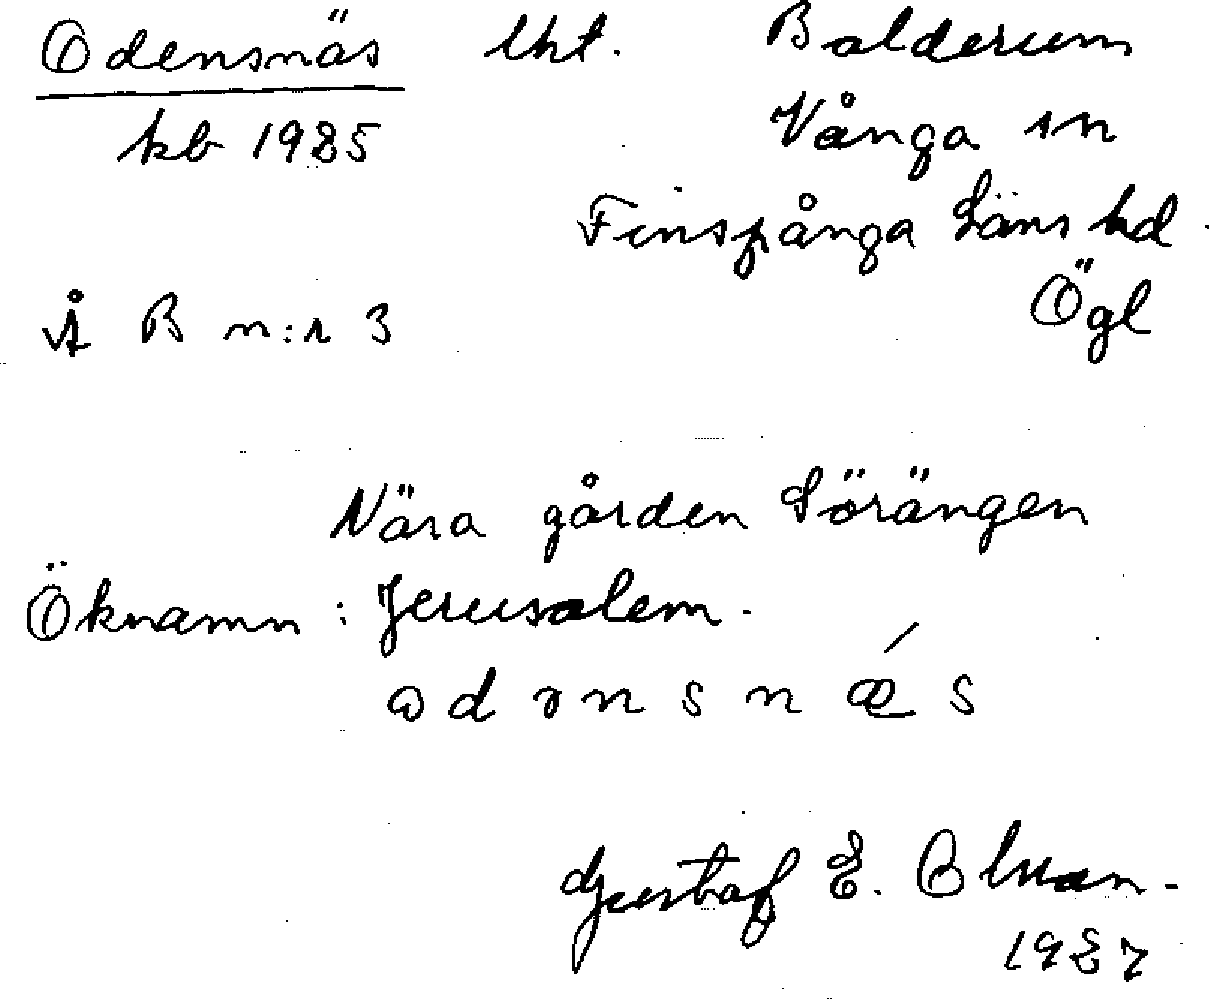 Odensnäs lht. Balderum
kb 1925 Vånga sn
Finspånga Läns hd.
Ögl
Å B n:r 3
Nära gården Sörängen
Öknamn: Jerusalem.
Gustaf E.
1927